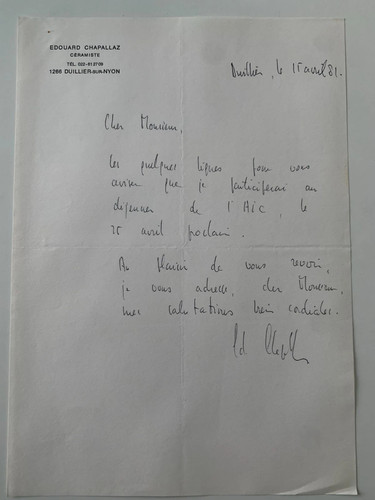 EDOUARD CHAPALLAZ
CÉRAMISTE
TÉL. 022-61 27 09
1266 DUILLIER-SUR-NYON
Duillier, le 15 avril 81.-
Cher Monsieur,
Ces quelques lignes pour vous
aviser que je participerai au
déjeuner de l'AIC, le
25 avril prochain.
Au plaisir de vous revoir,
je vous adresse, cher Monsieur,
mes salutations bien cordiales.
Ed. Chapallaz